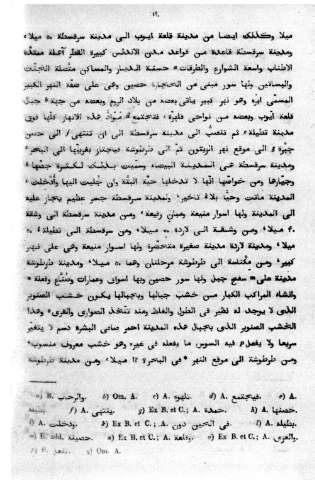 ١٩٠
ميلا وكذلك ايضا من مدينة قلعة ايوب الى مدينة سرقسطة ٥٠ ميلا
ومدينة سرقسطة قاعدة من قواعد مدن الاندلس كبيرة القطر آهلة ممتدة
الاطناب واسعة الشوارع والطرقات حسنة الديار والمساكن متصلة الجنات
والبساتين ولها سور مبنى من الحجارة حصين وهى على ضفة النهر الكبير
المسمى ابره وهو نهر كبير يأتى بعضه من بلاد الروم وبعضه من جهة جبال
قلعة ايوب وبعضه من نواحى قلهرة فتجتمع مواد هذه الانهار كلها فوق
مدينة تطيلة ثم تنصب الى مدينة سرقسطة الى ان تنتهى الى حصن
جبرة الى موقع نهر الزيتون ثم الى طرطوشة فيجتاز بغربيها الى البحر
ومدينة سرقسطة هى المدينة البيضاء وسميت بذلك لكثرة جصها
وجيارها ومن خواصها انها لا تدخلها حية البتة وان جلبت اليها وأدخلت
المدينة ماتت وحيا بلا تاخير ولمدينة سرقسطة جسر عظيم يجاز عليه
الى المدينة ولها اسوار منيعة ومبان رفيعة ومن مدينة سرقسطة الى وشقة
٤٠ ميلا ومن وشقة الى لاردة ٧٠ ميلا ومن سرقسطة الى تطيلة ٥٠
ميلا ومدينة لاردة مدينة صغيرة متحضرة ولها اسوار منيعة وهى على نهر
كبير ومن مكناسة الى طرطوشة مرحلتان وهما ٥٠ ميلا ومدينة طرطوشة
مدينة على سفح جبل ولها سور حصين وبها اسواق وعمارات وضياع وفعلة
وانشاء المراكب الكبار من خشب جبالها وبجبالها يكون خشب الصنوبر
الذى لا يوجد له نظير فى الطول والغلظ ومنه تتخذ الصوارى والقرى وهذا
الخشب الصنوبر الذى بجبال هذه المدينة احمر صافى البشرة دسم لا يتغير
سريعا ولا يفعل فيه السوس ما يفعله فى غيره وهو خشب معروف منسوب
ومن طرطوشة الى موقع النهر فى البحر ١٢ ميلا ومن مدينة طرطوشة
a) B. والرحب. b) Om. A. c) A. قلهوه. d) A. فيجتمع. e) A.
f) A. ينتهى. g) Ex B. et C.; A. حمقة. h) A. حصنها.
i) A. ودخلت. k) Ex B. et C.; A.
Ex B. et C.; A. Ex B. et C.; A. والعرى.
Om. A.